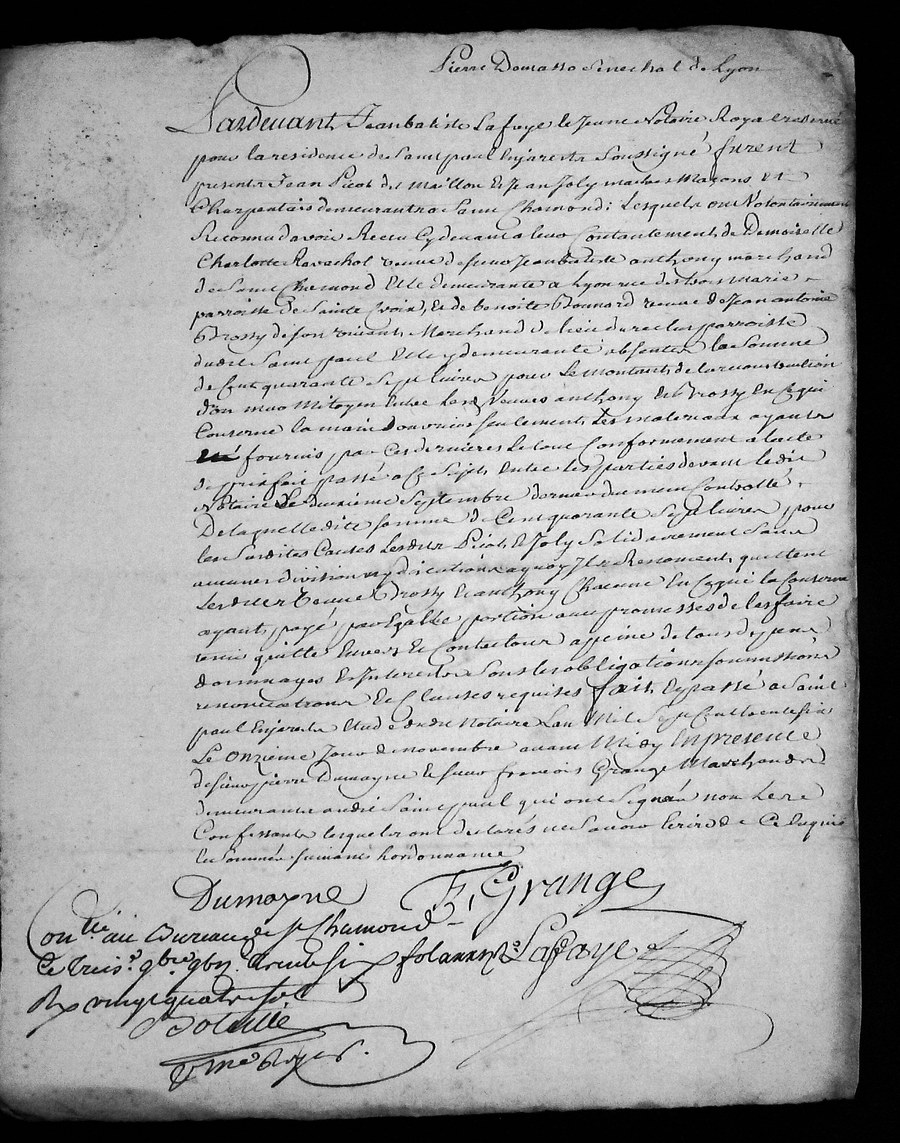 Pierre Dumas Senechal de Lyon
Pardevant Jeanbatiste Lafaye le Jeune Notaire Royal reservé
pour la residence de Saint paul Enjarests Soussigné furent
presents Jean Picot dit Maillon Et Jean Joly maitres Maçons et
Charpentiers demeurants a Saint Chamond: Lesquels ont Volontairement
Reconnu davoir Receu Cydevant a leur Contantement de Demoiselle
Charlotte Ravachol veuve de sieur Jeanbatiste anthony marchand
de Saint Chamond Elle demeurante a Lyon rue des trois Marie
parroisse de Sainte Croix, Et de benoite Bonnard veuve de Jean antoine
Brossy de son vivant Marchand du lieu du reclus parroisse
dudit Saint paul Elle y demeurante absentes la Somme
de Cent quarante Sept livres pour Le Montant de la reconstruction
d'un mur Mitoyen Entre Lesd Veuves anthony Et Brossy En Ce qui
Conserne la main Douvriers Seulement, Les materiaux ayants
fournis par Ces dernieres Le tout Conformement a lacte
de prixfait passé a Ce Sujet Entre les parties devant le dit
Notaire Le deuxième Septembre dernier duement Controllé,
De laquelle dite somme de Cent quarante Sept livres pour
les Susdites Causes Lesdits Picot Et Joly Solidairement Sans
aucune division ny dication aquoy Ils Renoncent, quittent
Lesdites Veuve Brossy Et anthony Chacune En Cequi la Conserne
ayant payé par Egalle portion avec promesses de les faire
tenir quitte Envers Et Contre tous a peine de tous depens
dommages Et Interests Sous les obligations soumissions
renonciations Et Clauses requises fait Et passé a Saint
paul Enjarests Etude dudit Notaire Lan Mil Sept Cent trente six
Le onzieme Jour de novembre avant Midy En presence
de sieur pierre Dumayne Et sieur francois Grange Marchands
demeurants audit Saint paul qui ont Signés non les
Confessants lesquels ont declarés ne Savoir Ecrire de Ce Enquis
Et Sommés Suivant Lordonnance
Dumayne F, Grange
Con.lé au Bureau de St Chamond
Ce treis.e 9bre 1736 trente six fol Lafaye
Rx vingt quatre sols